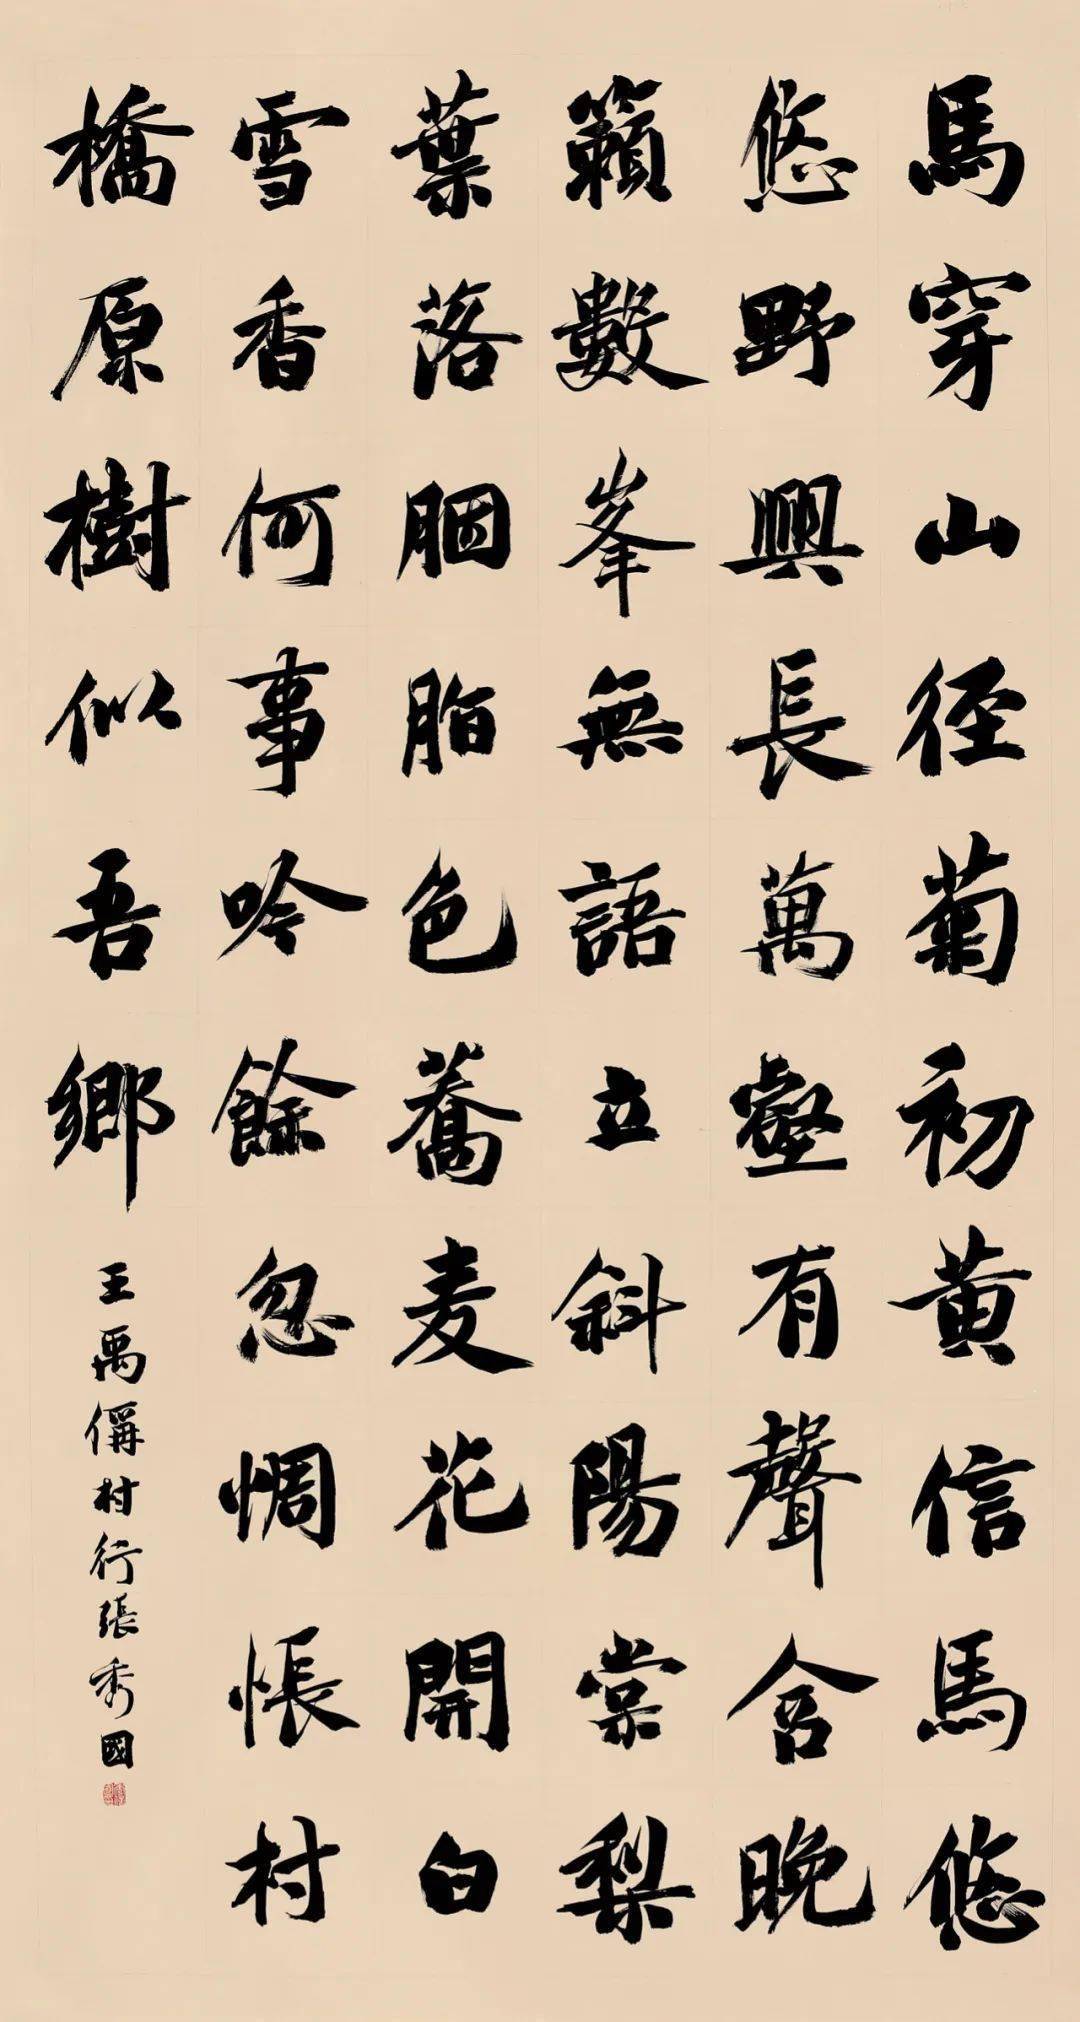 馬穿山径菊初黄信馬悠
悠野興長萬壑有聲含晚
籟數峯無語立斜陽棠梨
葉落胭脂色蕎麦花開白
雪香何事吟餘忽惆悵村
橋原樹似吾鄉
王禹偁村行張秀國